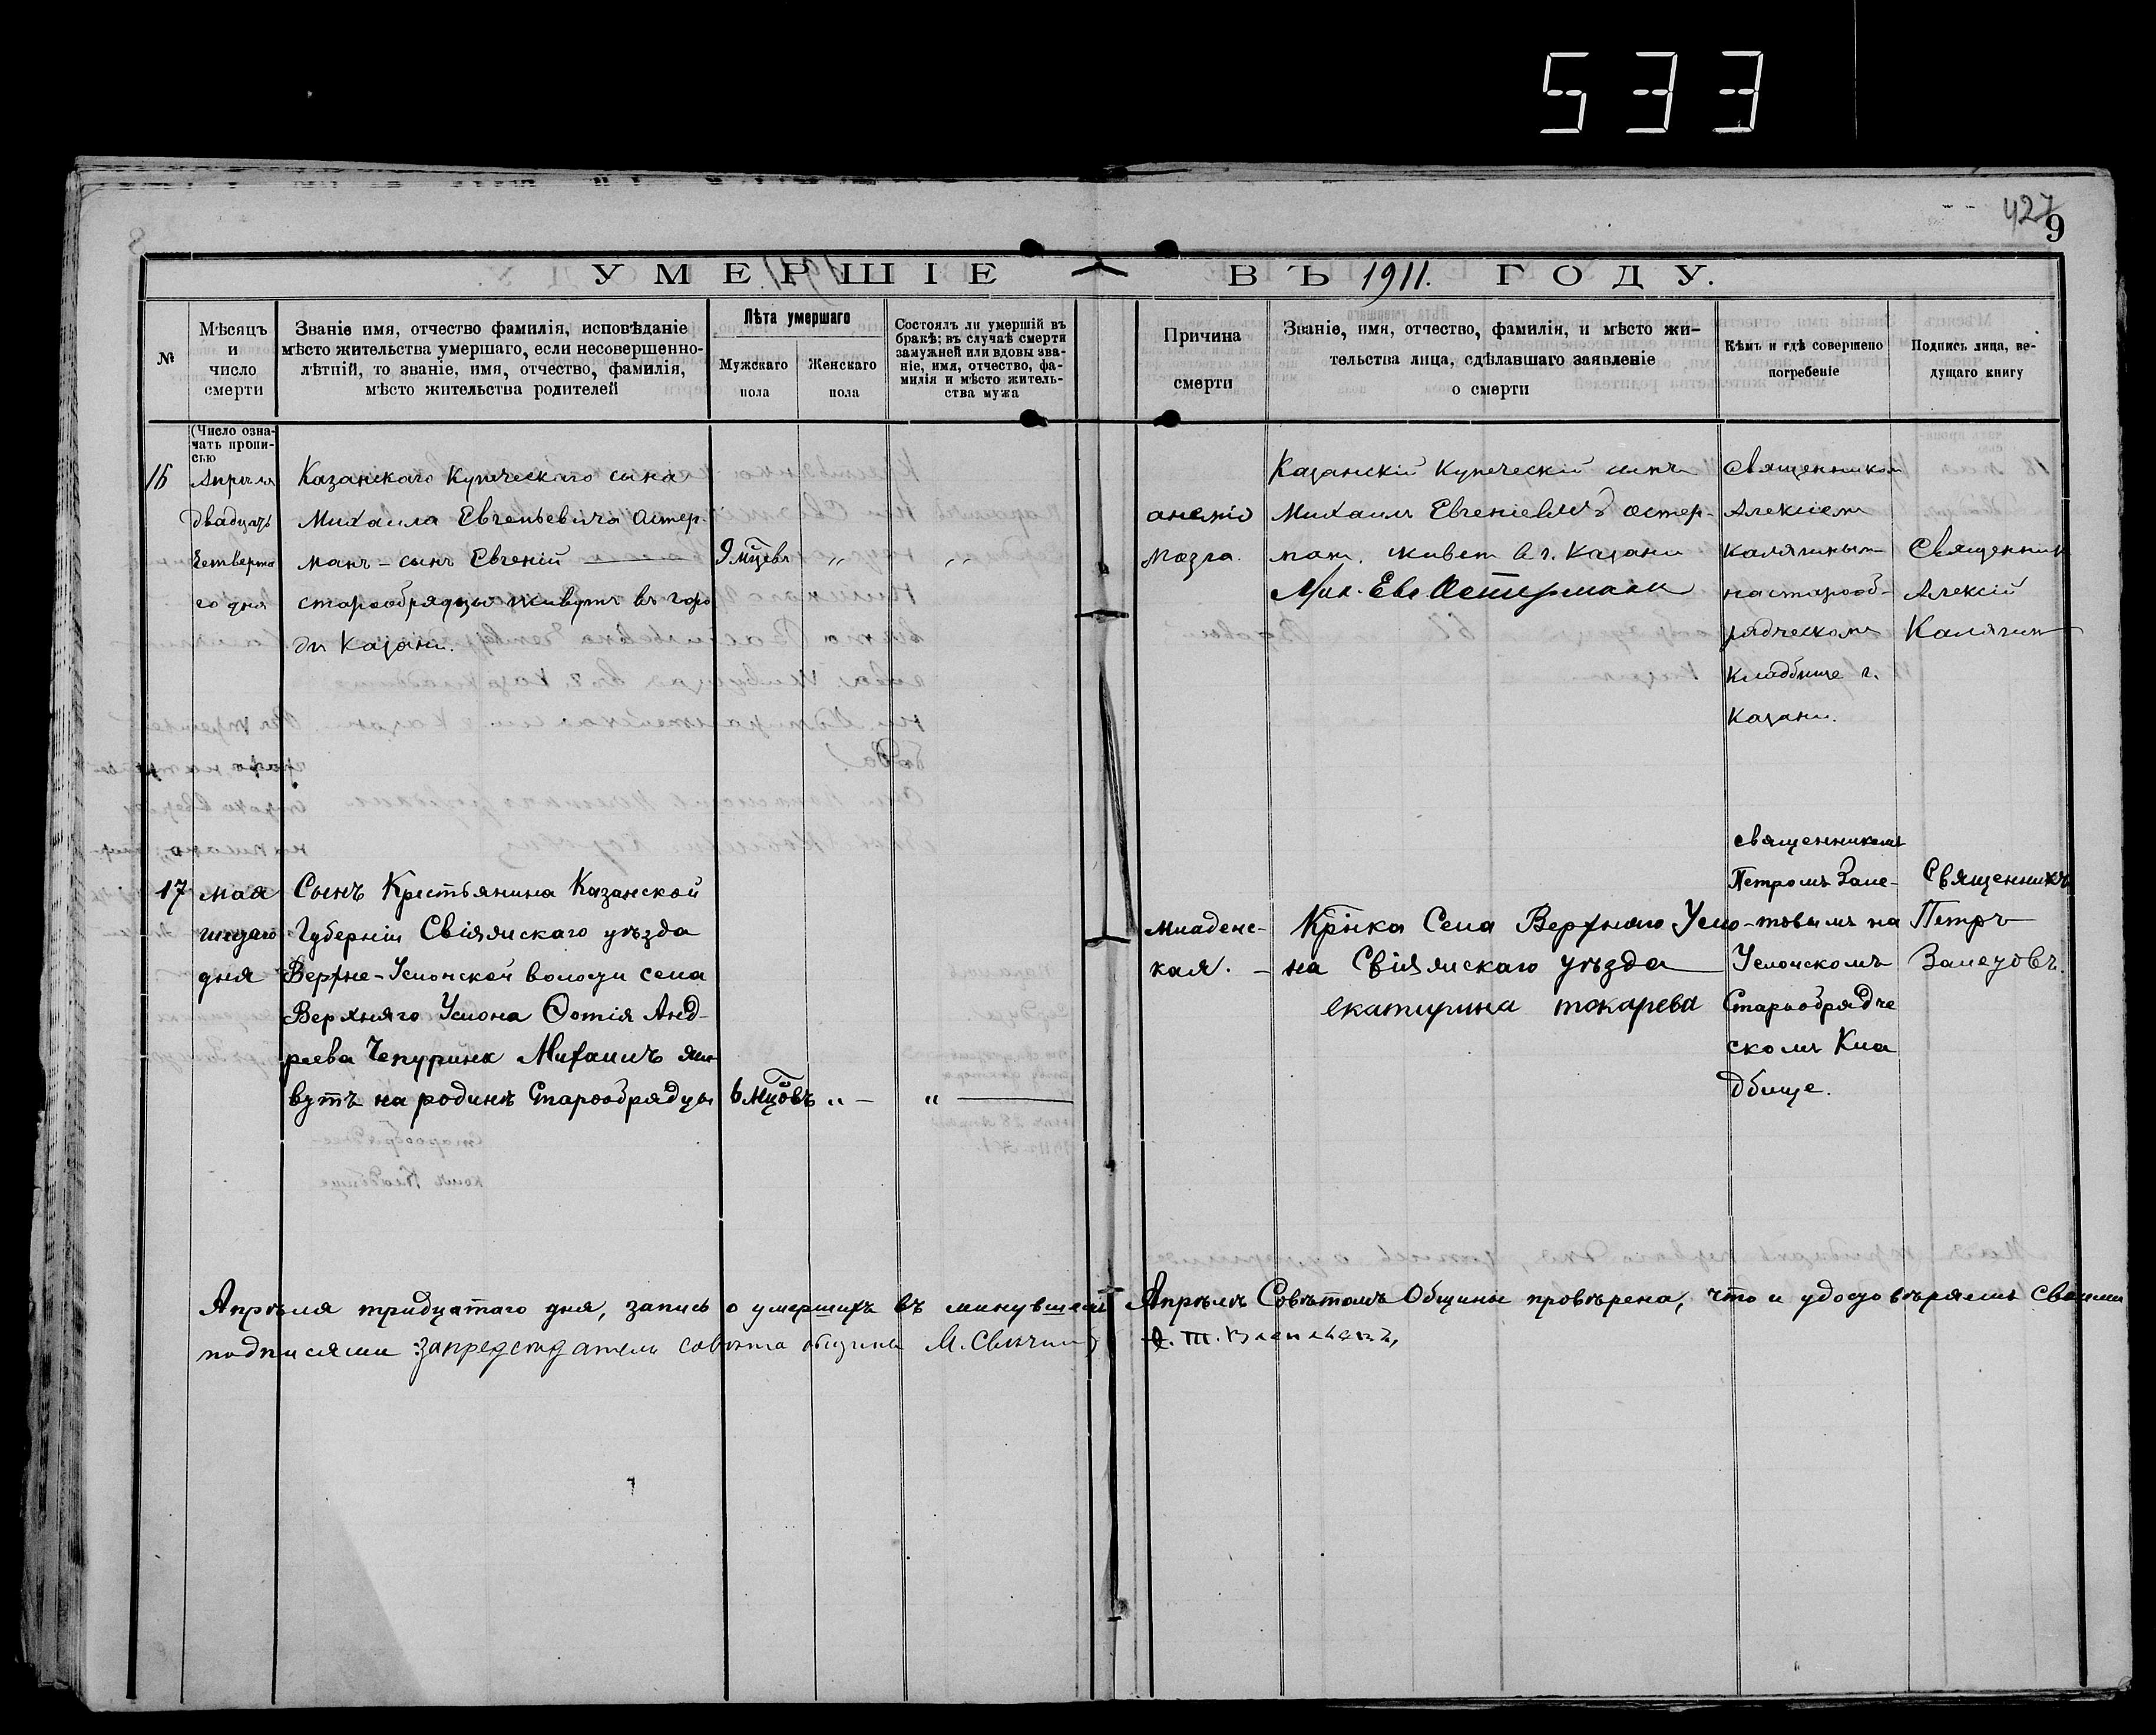 533
427
9
УМЕРШІЕ ВЪ 1911. ГОДУ.
№
Мѣсяцъ
и
число
смерти
Званіе имя, отчество фамилія, исповѣданіе
мѣсто жительства умершаго, если несовершенно-
лѣтній, то званіе, имя, отчество, фамилія,
мѣсто жительства родителей
Лѣта умершаго
Мужскаго
пола
Женскаго
пола
Состоялъ ли умершій въ
бракѣ; въ случаѣ смерти
замужней или вдовы зва-
ніе, имя, отчество, фа-
милія и мѣсто житель-
ства мужа
Причина
смерти
Званіе, имя, отчество, фамилія, и мѣсто жи-
тельства лица, сдѣлавшаго заявленіе
о смерти
Кѣмъ и гдѣ совершено
погребеніе
Подпись лица, ве-
дущаго книгу
(Число озна-
чать пропи-
сью
16
Апрѣля
двадцать
четверта
го дня
Казанскаго Купеческаго сына
Михаила Евгеньевича Остер-
манъ - сынъ Евгеній
старообрядцы живутъ въ горо
дѣ Казани.
9 мцевъ
„
„
анемія
мозга.
Казанскій Купеческій сынъ
Михаилъ Евгеніевичъ Остер-
манъ. живет в г. Казани
Мих. Евг Остерманъ
Священником
Алексіем
Калягиным
на старооб-
рядческомъ
кладбище г.
Казани.
Священник
Алексій
Калягинъ
17
мая
шестаго
дня
Сынъ Крестьянина Казанской
Губерніи Свіяжскаго уѣзда
Верхне-Услонской волости села
Верхняго Услона Фотія Анд-
реева Чепурина Михаилъ жи-
вутъ на родинѣ Старообрядцы
6 мцовъ
„ —
„
Младенс-
кая. —
Крнка Села Верхняго Усло-
на Свіяжскаго уѣзда
екатирина токарева
священникомъ
Петромъ Заме-
товымъ на
Услонскомъ
Старообрядче
скомъ Кла
дбище.
Священникъ
Петръ
Заметовъ.
Апрѣля тридцатаго дня, запись о умершихъ въ минувшемъ Апрѣлѣ Совѣтомъ Общины провѣрена, что и удостовѣряемъ Своими
подписями: за председатель совѣта общины М.